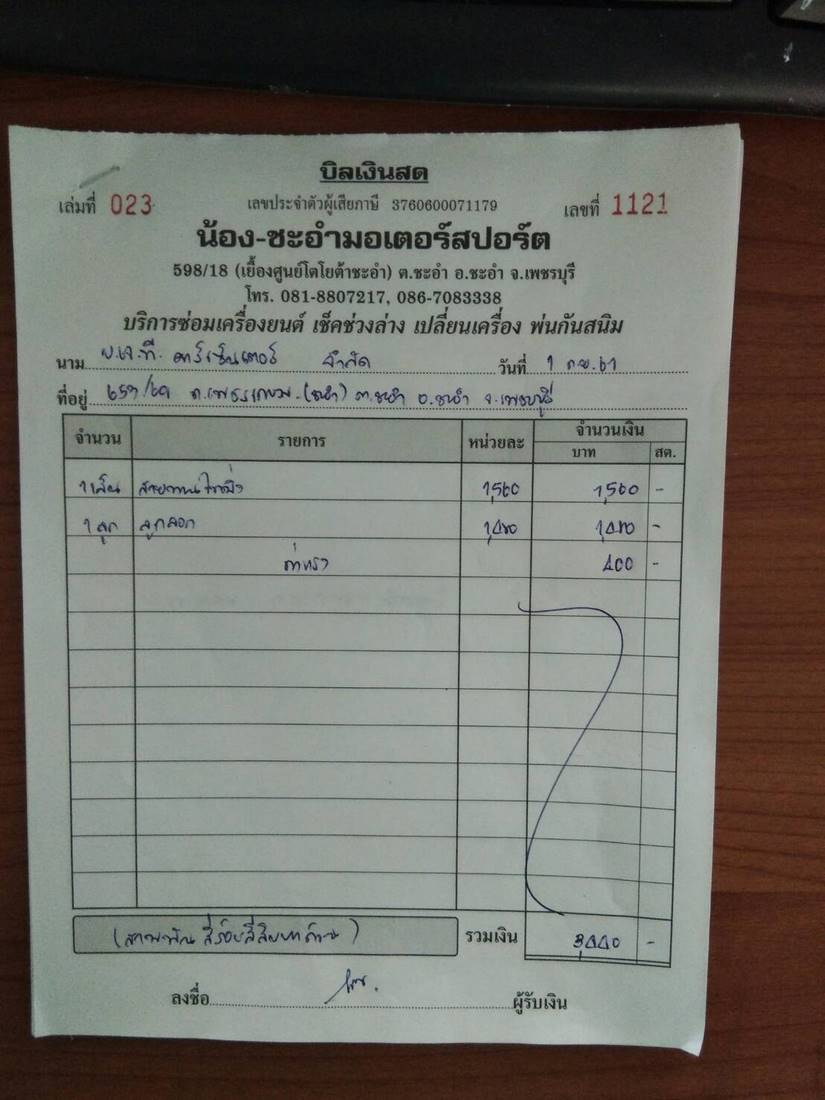 บิลเงินสด
เล่มที่ 023 เลขประจำตัวผู้เสียภาษี 3760600071179 เลขที่ 1121
น้อง-ชะอำมอเตอร์สปอร์ต
598/18 (เยื้องศูนย์โตโยต้าชะอำ) ต.ชะอำ อ.ชะอำ จ.เพชรบุรี
โทร. 081-8807217, 086-7083338
บริการซ่อมเครื่องยนต์ เช็คช่วงล่าง เปลี่ยนเครื่อง พ่นกันสนิม
นาม บ.เจ.ที. คาร์เซ็นเตอร์ จำกัด วันที่ 1 กย. 61
ที่อยู่ ถ.เพชรเกษม (ชะอำ) ต.ชะอำ อ.ชะอำ จ.เพชรบุรี
จำนวน รายการ หน่วยละ จำนวนเงิน
บาท สต.
1 เส้น สายพานไทม์มิ่ง 1,560 1,560 -
1 ลูก ลูกลอก 1,480 1,480 -
ค่าแรง 400 -
(สามพันสี่ร้อยสี่สิบบาทถ้วน) รวมเงิน 3,440 -
ลงชื่อ ผู้รับเงิน